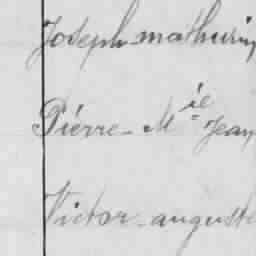 Joseph mathurin
Pierre-Mie Jean
Victor-auguste